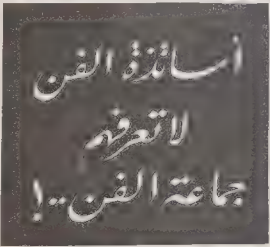 أساتذة الفن
لا تعرفهم
جماعة الفن..!